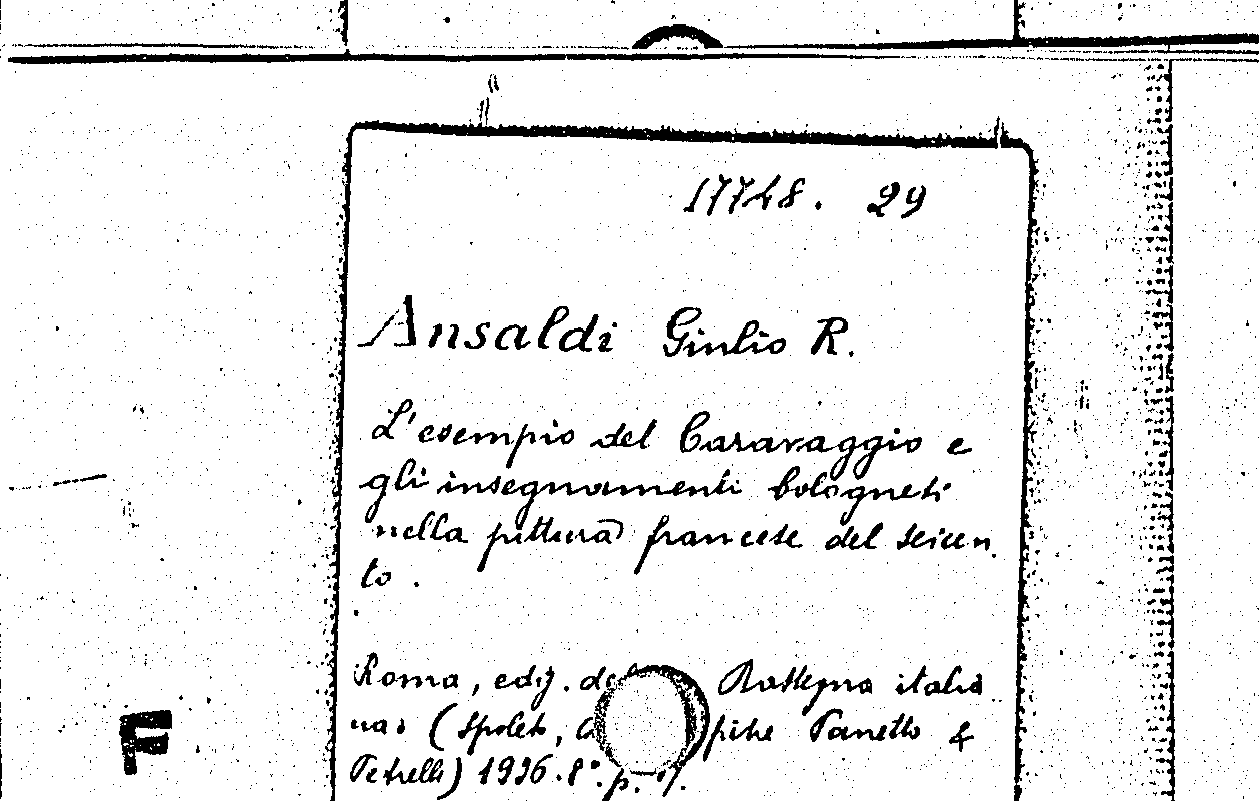 17748. 29
Ansaldi Giulio R.
L'esempio del Caravaggio e
gli insegnamenti bolognesi
nella pittura francese del seicen
to.
Roma, ediz. Rassegna italia
na (Spoleto, Panetto &
Petrelli) 1926. 8°. p.
F